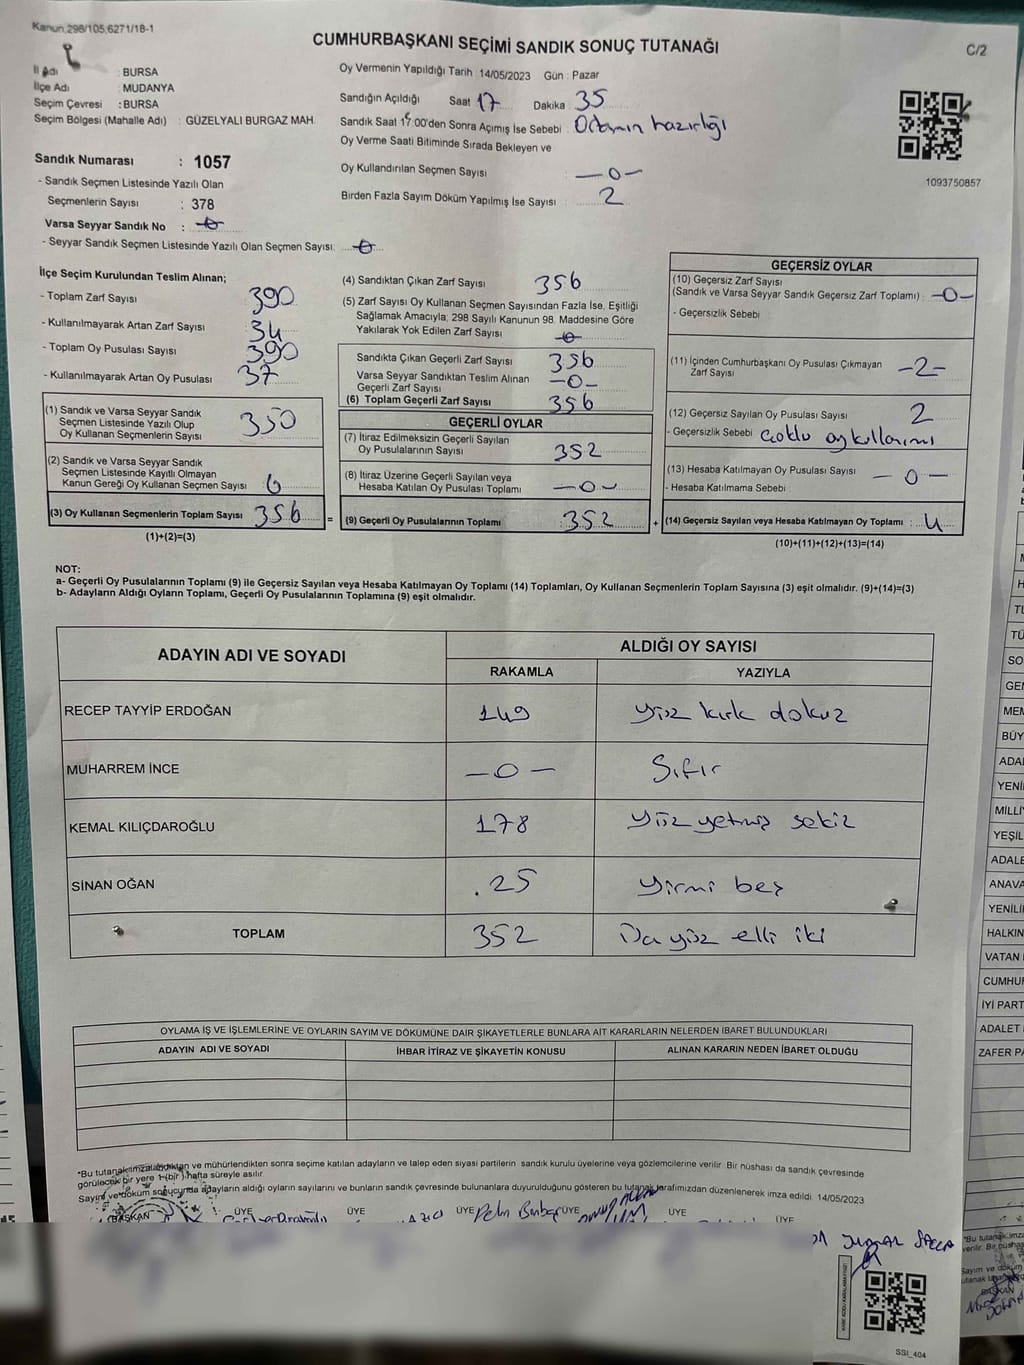 Kanun.298/105;6271/18-1
CUMHURBAŞKANI SEÇİMİ SANDIK SONUÇ TUTANAĞI
C/2
İl Adı : BURSA
İlçe Adı : MUDANYA
Seçim Çevresi : BURSA
Seçim Bölgesi (Mahalle Adı) : GÜZELYALI BURGAZ MAH.
Oy Vermenin Yapıldığı Tarih 14/05/2023 Gün : Pazar
Sandığın Açıldığı Saat 17 Dakika 35
Sandık Saat 17:00'den Sonra Açımış İse Sebebi : Ortamın hazırlığı
Oy Verme Saati Bitiminde Sırada Bekleyen ve
Oy Kullandırılan Seçmen Sayısı —0—
Birden Fazla Sayım Döküm Yapılmış İse Sayısı : 2
1093750857
Sandık Numarası : 1057
- Sandık Seçmen Listesinde Yazılı Olan
Seçmenlerin Sayısı : 378
Varsa Seyyar Sandık No : 0
- Seyyar Sandık Seçmen Listesinde Yazılı Olan Seçmen Sayısı: 0
İlçe Seçim Kurulundan Teslim Alınan;
- Toplam Zarf Sayısı 390
- Kullanılmayarak Artan Zarf Sayısı 34
- Toplam Oy Pusulası Sayısı 390
- Kullanılmayarak Artan Oy Pusulası 37
(1) Sandık ve Varsa Seyyar Sandık
Seçmen Listesinde Yazılı Olup
Oy Kullanan Seçmenlerin Sayısı 350
(2) Sandık ve Varsa Seyyar Sandık
Seçmen Listesinde Kayıtlı Olmayan
Kanun Gereği Oy Kullanan Seçmen Sayısı 6
(3) Oy Kullanan Seçmenlerin Toplam Sayısı 356 =
(1)+(2)=(3)
(4) Sandıktan Çıkan Zarf Sayısı 356
(5) Zarf Sayısı Oy Kullanan Seçmen Sayısından Fazla İse, Eşitliği
Sağlamak Amacıyla; 298 Sayılı Kanunun 98. Maddesine Göre
Yakılarak Yok Edilen Zarf Sayısı 0
Sandıkta Çıkan Geçerli Zarf Sayısı 356
Varsa Seyyar Sandıktan Teslim Alınan
Geçerli Zarf Sayısı —0—
(6) Toplam Geçerli Zarf Sayısı 356
GEÇERLİ OYLAR
(7) İtiraz Edilmeksizin Geçerli Sayılan
Oy Pusulalarının Sayısı 352
(8) İtiraz Üzerine Geçerli Sayılan veya
Hesaba Katılan Oy Pusulası Toplamı —0—
(9) Geçerli Oy Pusulalarının Toplamı : 352 +
GEÇERSİZ OYLAR
(10) Geçersiz Zarf Sayısı
(Sandık ve Varsa Seyyar Sandık Geçersiz Zarf Toplamı) : —0—
- Geçersizlik Sebebi
(11) İçinden Cumhurbaşkanı Oy Pusulası Çıkmayan
Zarf Sayısı —2—
(12) Geçersiz Sayılan Oy Pusulası Sayısı 2
- Geçersizlik Sebebi çoklu oy kullanımı
(13) Hesaba Katılmayan Oy Pusulası Sayısı —0—
- Hesaba Katılmama Sebebi
(14) Geçersiz Sayılan veya Hesaba Katılmayan Oy Toplamı : 4
(10)+(11)+(12)+(13)=(14)
NOT:
a- Geçerli Oy Pusulalarının Toplamı (9) ile Geçersiz Sayılan veya Hesaba Katılmayan Oy Toplamı (14) Toplamları, Oy Kullanan Seçmenlerin Toplam Sayısına (3) eşit olmalıdır. (9)+(14)=(3)
b- Adayların Aldığı Oyların Toplamı, Geçerli Oy Pusulalarının Toplamına (9) eşit olmalıdır.
ADAYIN ADI VE SOYADI
ALDIĞI OY SAYISI
RAKAMLA YAZIYLA
RECEP TAYYİP ERDOĞAN 149 yüz kırk dokuz
MUHARREM İNCE —0— Sıfır
KEMAL KILIÇDAROĞLU 178 yüz yetmiş sekiz
SİNAN OĞAN .25 yirmi beş
TOPLAM 352 Üç yüz elli iki
OYLAMA İŞ VE İŞLEMLERİNE VE OYLARIN SAYIM VE DÖKÜMÜNE DAİR ŞİKAYETLERLE BUNLARA AİT KARARLARIN NELERDEN İBARET BULUNDUKLARI
ADAYIN ADI VE SOYADI İHBAR İTİRAZ VE ŞİKAYETİN KONUSU ALINAN KARARIN NEDEN İBARET OLDUĞU
*Bu tutanak imzalandıktan ve mühürlendikten sonra seçime katılan adayların ve talep eden siyasi partilerin sandık kurulu üyelerine veya gözlemcilerine verilir. Bir nüshası da sandık çevresinde
görülecek bir yere 1 (bir) hafta süreyle asılır.
Sayım ve döküm sonucunda adayların aldığı oyların sayılarını ve bunların sandık çevresinde bulunanlara duyurulduğunu gösteren bu tutanak tarafımızdan düzenlenerek imza edildi. 14/05/2023
BAŞKAN ÜYE ÜYE ÜYE ÜYE ÜYE ÜYE
SSI_404
TÜ
SO
GEN
MEM
BÜY
ADAL
YENİ
MİLLİ
YEŞİL
ADALE
ANAVA
YENİLİ
HALKIN
VATAN
CUMHUR
İYİ PART
ADALET
ZAFER PA
*Bu tutanak
verilir. Bir nüsha
Sayım ve döküm
BAŞKAN